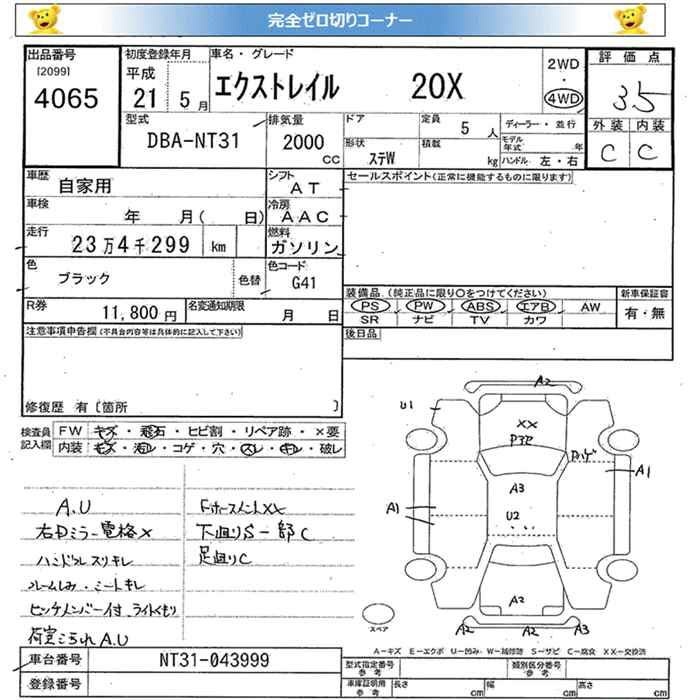 完全ゼロ切りコーナー
出品番号
[2099]
4065
初度登録年月
平成
21 5月
車名・グレード
エクストレイル 20X
2WD
・
4WD
評価点
3.5
外装 内装
C C
型式
DBA-NT31
排気量
2000
CC
ドア
定員
5人
ディーラー・並行
形状
ステW
積載
kg
モデル年式
年
ハンドル 左・右
車歴
自家用
シフト
AT
セールスポイント(正常に機能するものに限ります)
車検
年 月( 日)
冷房
AAC
走行
23万4千299 km
燃料
ガソリン
色
ブラック
色替
色コード
G41
R券
11,800円
名変通知期限
月 日
装備品 (純正品に限り○をつけてください)
PS PW ABS エアB AW
SR ナビ TV カワ
新車保証書
有・無
注意事項申告欄(不具合内容等は具体的に記入して下さい)
後日品
修復歴 有〔箇所 〕
検査員記入欄
FW キズ・飛石・ヒビ割・リペア跡・×要
内装 キズ・汚レ・コゲ・穴・スレ・キレ・破レ
A.U
右Dミラー電格×
ハンドルスリキレ
シートキレ
ヒッチメンバー付 ライトくもり
A.U
XX
下廻りS一部C
足廻りC
A2
U1
XX
A1
A3
A1
U2
A2
A2 A2 A3
スペア
A-キズ E-エクボ U-凹み W-補修跡 S-サビ C-腐食 XX-交換済
車台番号
NT31-043999
登録番号
型式指定番号
参考
類別区分番号
参考
車庫証明用
参考
長さ cm
幅 cm
高さ cm